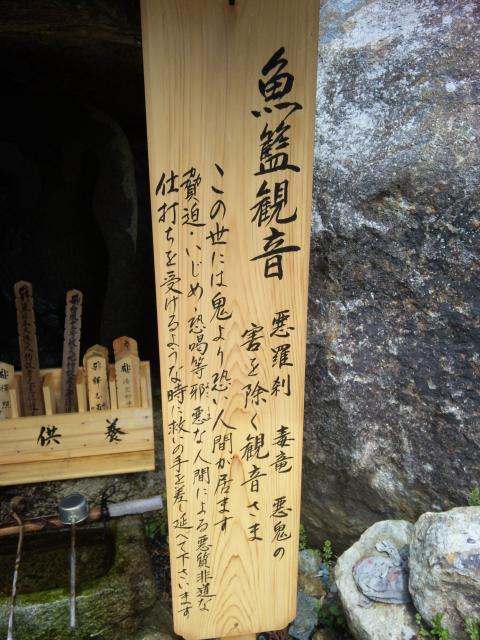 魚籃観音
悪羅刹 毒竜 悪鬼の
害を除く観音さま
この世には鬼より恐い人間が居ます
脅迫・いじめ・恐喝等邪悪な人間による悪質非道な
仕打ちを受けるような時に救いの手を差し延べて下さいます
供養